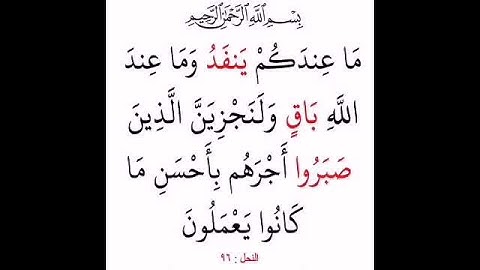 بِسْمِ اللَّهِ الرَّحْمَٰنِ الرَّحِيمِ
مَا عِندَكُمْ يَنفَدُ وَمَا عِندَ
اللَّهِ بَاقٍ وَلَنَجْزِيَنَّ الَّذِينَ
صَبَرُوا أَجْرَهُم بِأَحْسَنِ مَا
كَانُوا يَعْمَلُونَ
النحل : ٩٦